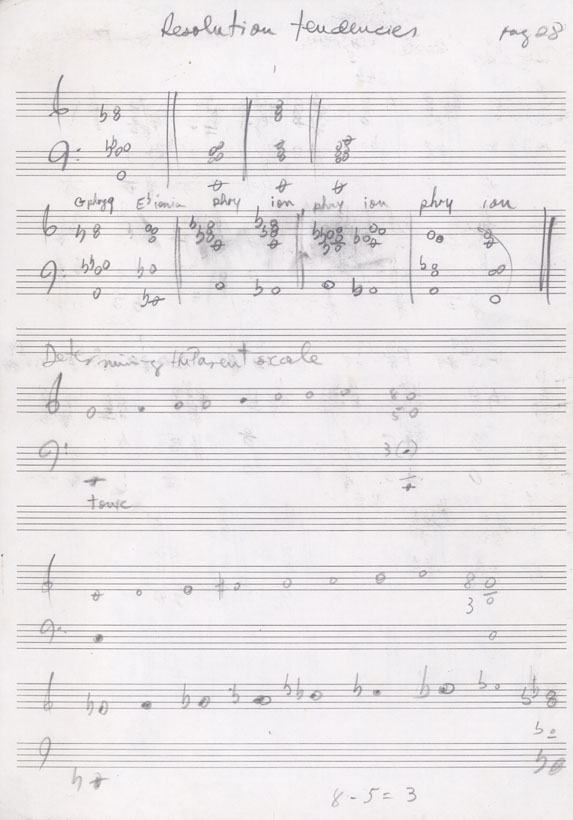 Resolution tendencies pag 28
G phryg Eb ionia phry ion phry ion phry ion
Determining the Parent scale
8
5
3
tonic
8
3
8 - 5 = 3